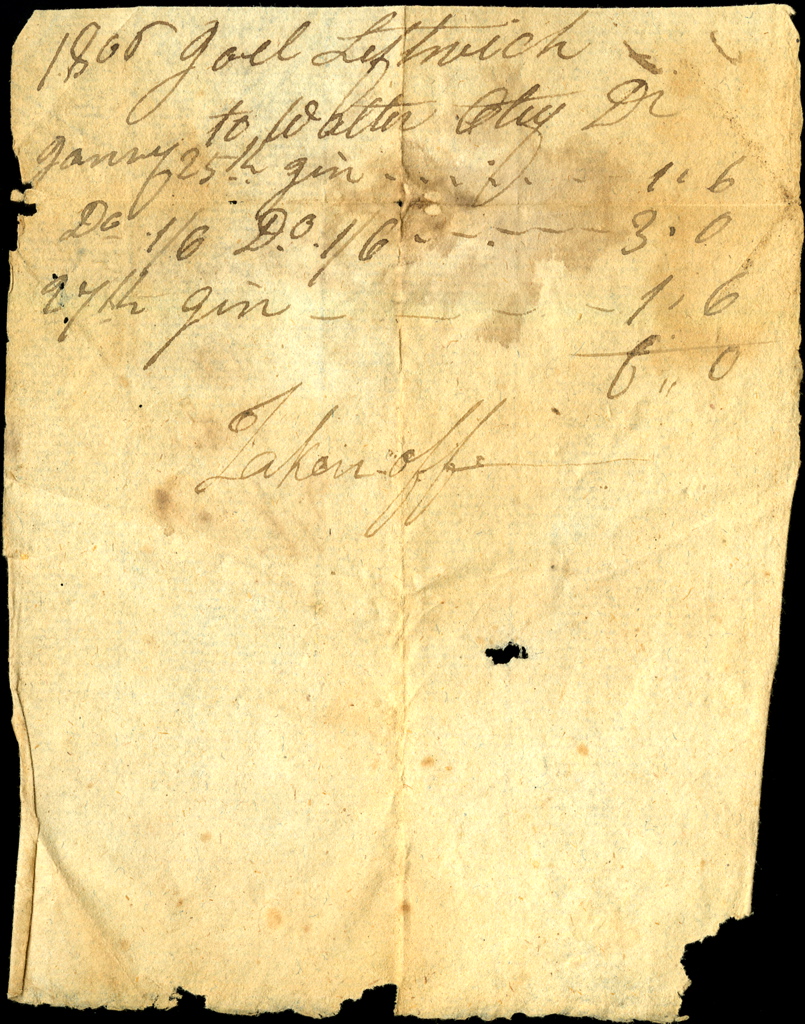 1806 Joel Leftwich
to Walter Otey Dr
Janry 25th gin - - - - - 1,6
Do 1/6 Do. 1/6 - - - - 3.0
27th gin - - - - 1,6
6,,0
Taken off